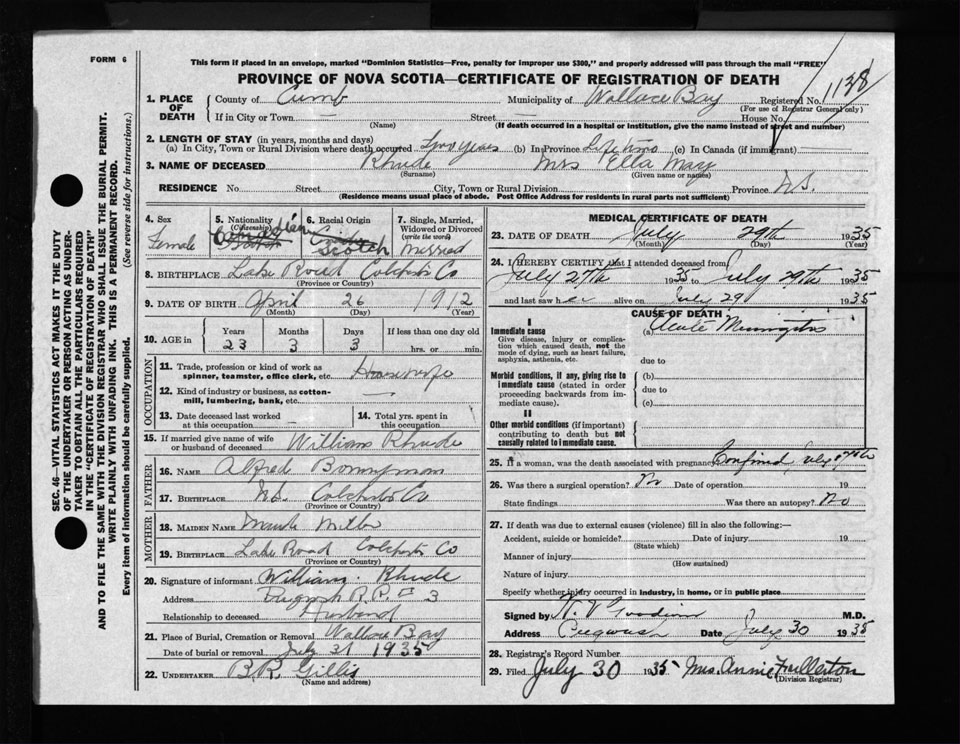 FORM 6
This form if placed in an envelope, marked "Dominion Statistics—Free, penalty for improper use $300," and properly addressed will pass through the mail "FREE"
PROVINCE OF NOVA SCOTIA—CERTIFICATE OF REGISTRATION OF DEATH
1. PLACE OF DEATH
County of Cumb Municipality of Wallace Bay Registered No. 1138
(For use of Registrar General only)
If in City or Town — Street — House No.
(Name) (If death occurred in a hospital or institution, give the name instead of street and number)
2. LENGTH OF STAY (in years, months and days)
(a) In City, Town or Rural Division where death occurred Two years (b) in Province Life time (c) In Canada (if immigrant)
3. NAME OF DECEASED Rhude Mrs Ella May
(Surname) (Given name or names)
RESIDENCE No. Street City, Town or Rural Division Province N.S.
(Residence means usual place of abode. Post Office Address for residents in rural parts not sufficient)
4. Sex Female
5. Nationality (Citizenship) Canadian
6. Racial Origin Scotch
7. Single, Married, Widowed or Divorced (write the word) Married
8. BIRTHPLACE Lake Road Colchester Co
(Province or Country)
9. DATE OF BIRTH April 26 1912
(Month) (Day) (Year)
10. AGE in Years 23 Months 3 Days 3 If less than one day old hrs. or min.
OCCUPATION
11. Trade, profession or kind of work as spinner, teamster, office clerk, etc. Housewife
12. Kind of industry or business, as cotton-mill, lumbering, bank, etc. —
13. Date deceased last worked at this occupation —
14. Total yrs. spent in this occupation
15. If married give name of wife or husband of deceased William Rhude
FATHER
16. NAME Alfred Bonnyman
17. BIRTHPLACE N.S. Colchester Co
(Province or Country)
MOTHER
18. MAIDEN NAME
19. BIRTHPLACE Lake Road Colchester Co
(Province or Country)
20. Signature of informant William Rhude
Address R.R. # 3
Relationship to deceased Husband
21. Place of Burial, Cremation or Removal Wallace Bay
Date of burial or removal July 31 1935
22. UNDERTAKER B.R. Gillis
(Name and address)
MEDICAL CERTIFICATE OF DEATH
23. DATE OF DEATH July 29th 1935
(Month) (Day) (Year)
24. I HEREBY CERTIFY that I attended deceased from
July 27th 1935 to July 29th 1935
and last saw her alive on July 29 1935
CAUSE OF DEATH
I
Immediate cause
Give disease, injury or complication which caused death, not the mode of dying, such as heart failure, asphyxia, asthenia, etc.
(a) Acute Meningitis
due to
Morbid conditions, if any, giving rise to immediate cause (stated in order proceeding backwards from immediate cause).
(b)
due to
(c)
II
Other morbid conditions (if important) contributing to death but not causally related to immediate cause.
25. If a woman, was the death associated with pregnancy Confined July
26. Was there a surgical operation? No Date of operation 19
State findings Was there an autopsy? No
27. If death was due to external causes (violence) fill in also the following:—
Accident, suicide or homicide? Date of injury 19
(State which)
Manner of injury
(How sustained)
Nature of injury
Specify whether injury occurred in industry, in home, or in public place
Signed by M.D.
Address Pugwash Date July 30 1935
28. Registrar's Record Number
29. Filed July 30 1935 Mrs. Annie Fullerton
(Division Registrar)
SEC. 46—VITAL STATISTICS ACT MAKES IT THE DUTY
OF THE UNDERTAKER OR PERSON ACTING AS UNDERTAKER TO OBTAIN ALL THE PARTICULARS REQUIRED
IN THE "CERTIFICATE OF REGISTRATION OF DEATH"
AND TO FILE THE SAME WITH THE DIVISION REGISTRAR WHO SHALL ISSUE THE BURIAL PERMIT.
WRITE PLAINLY WITH UNFADING INK. THIS IS A PERMANENT RECORD.
Every item of information should be carefully supplied. (See reverse side for instructions.)